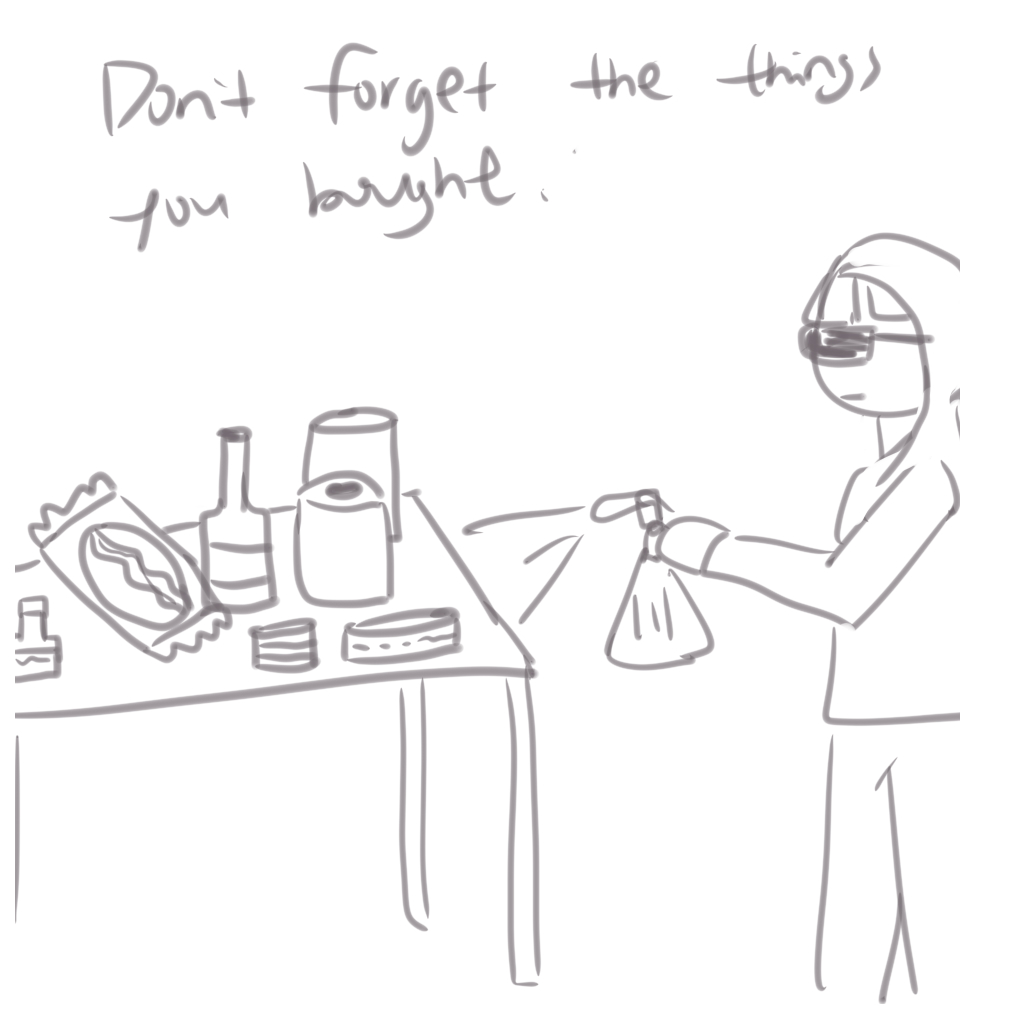 Don't forget the things
you bought.